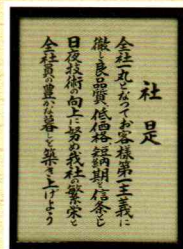 社是
全社一丸となってお客様第一主義に
徹し良品質、低価格、短納期を信条とし
日夜技術の向上に努め我社の繁栄と
全社員の豊かな暮しを築き上げよう